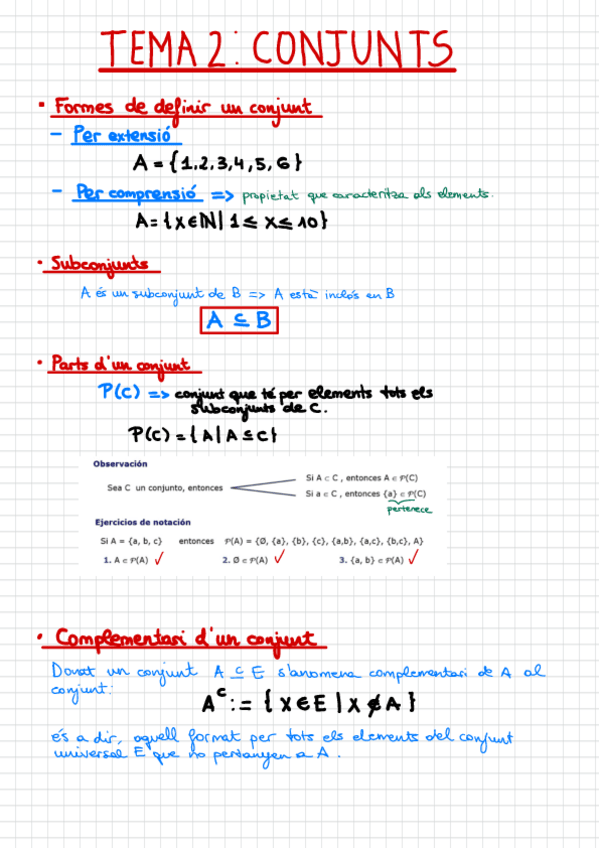 TEMA 2: CONJUNTS
• Formes de definir un conjunt
- Per extensió
A = {1,2,3,4,5,6}
- Per comprensió => propietat que caracteritza als elements.
A = {x∈ℕ| 1 ≤ x ≤ 10}
• Subconjunts
A és un subconjunt de B => A està inclós en B
A ⊆ B
• Parts d'un conjunt
P(C) => conjunt que té per elements tots els
subconjunts de C.
P(C) = {A | A ⊆ C}
Observación
Sea C un conjunto, entonces
Si A ⊂ C , entonces A ∈ 𝒫(C)
Si a ∈ C , entonces {a} ∈ 𝒫(C)
pertenece
Ejercicios de notación
Si A = {a, b, c} entonces 𝒫(A) = {Ø, {a}, {b}, {c}, {a,b}, {a,c}, {b,c}, A}
1. A ∈ 𝒫(A) ✓ 2. Ø ∈ 𝒫(A) ✓ 3. {a, b} ∈ 𝒫(A) ✓
• Complementari d'un conjunt
Donat un conjunt A ⊆ E s'anomena complementari de A al
conjunt:
Aᶜ := {x ∈ E | x ∉ A}
és a dir, aquell format per tots els elements del conjunt
universal E que no pertanyen a A.